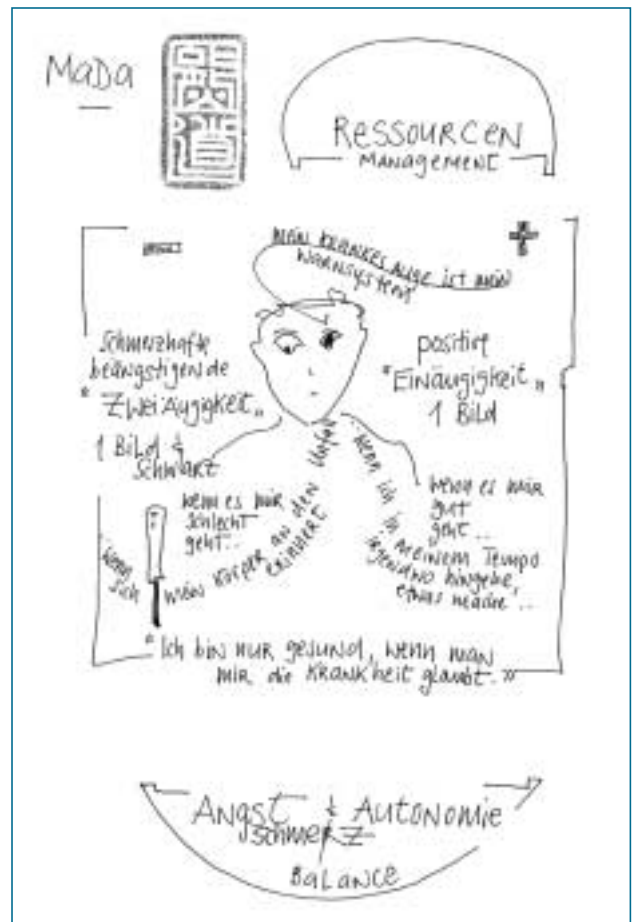 MaDa
RESSOURCEN
MANAGEMENT
MEIN KRANKES AUGE ist mein
WARNSYSTEM
Schmerzhafte
beängstigende
"ZWEIÄUGIGKEIT"
1 BiLd &
SCHWARZ
positive
"EINÄUGIGKEIT"
1 Bild
wenn es mir
schlecht
geht...
wenn
sich mein Körper an den Unfall
erinnert
wenn es mir
gut
geht...
wenn ich in meinem Tempo
irgendwo hingehe,
etwas mache...
"Ich bin nur gesund, wenn man
mir die KRANKheit glaubt."
ANGST & AUTONOMIE
Schmerz
BALANCE